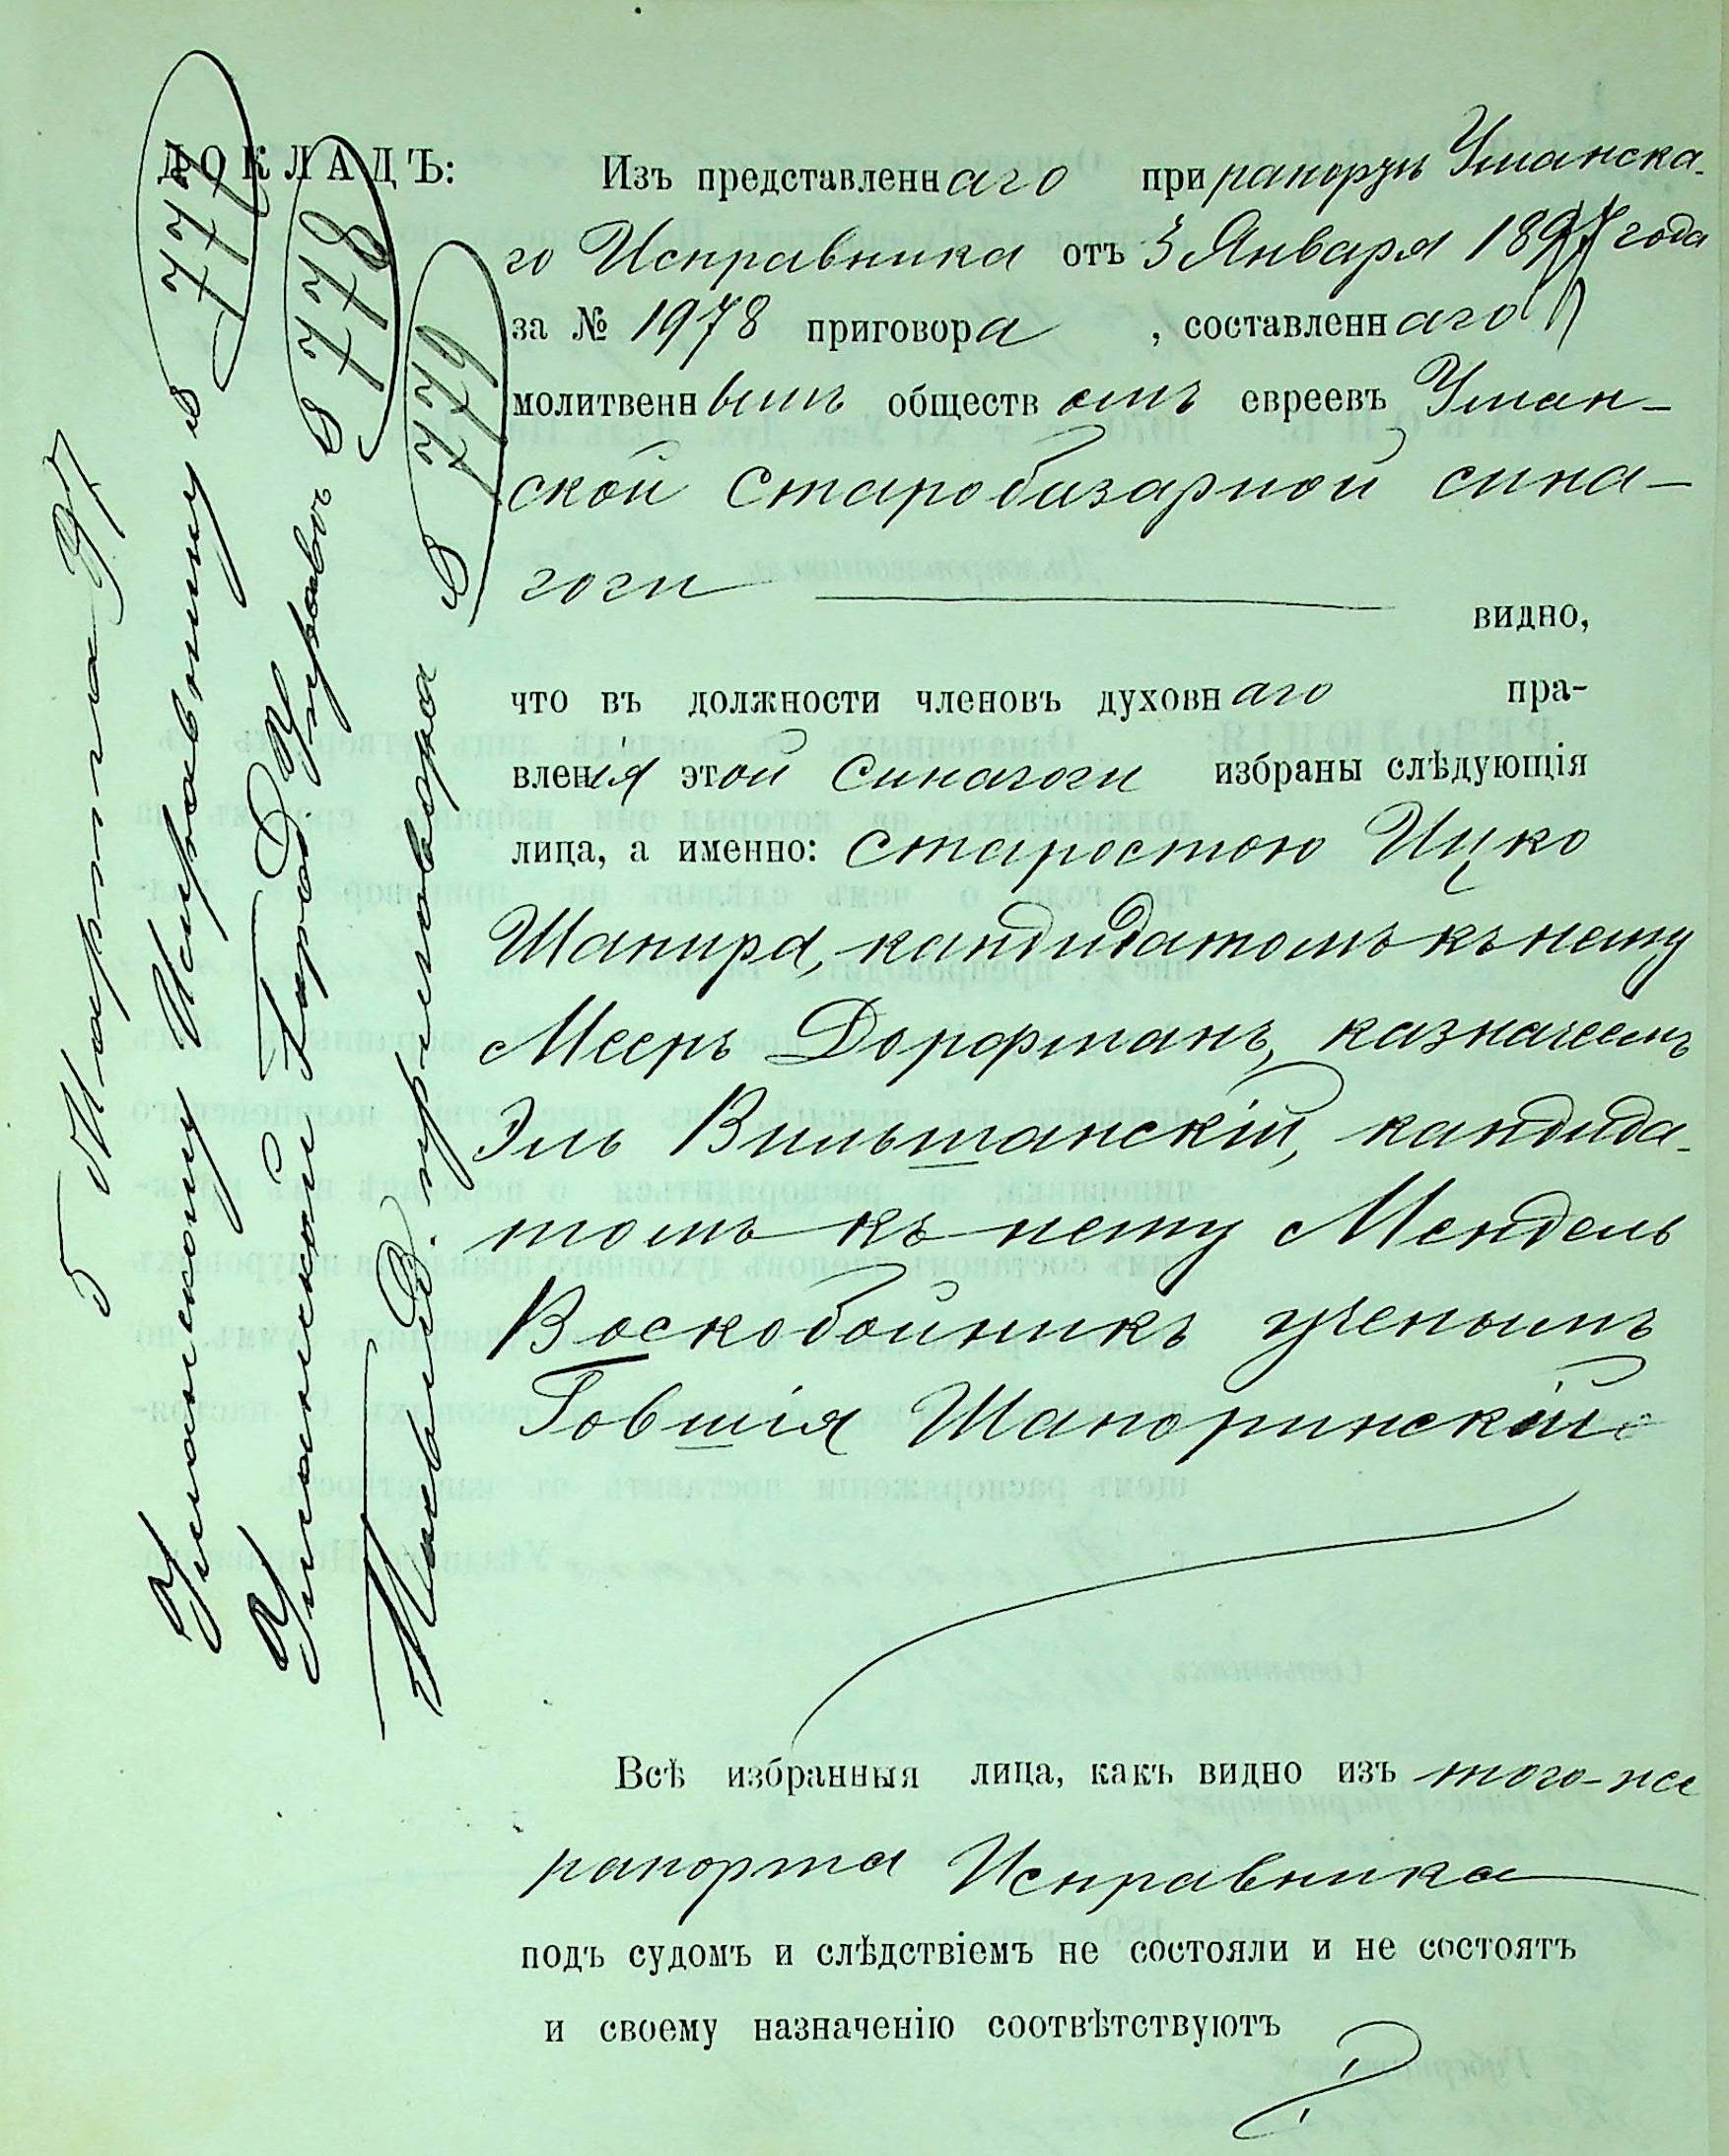 ДОКЛАДЪ:
Изъ представленнаго при рапортѣ Уманска-
го Исправника отъ 3 Января 1897 года
за № 1978 приговора , составленнаго
молитвеннымъ обществомъ евреевъ Уман-
ской Старобазарной сина-
гоги
видно,
что въ должности членовъ духовнаго пра-
вленія этой Синагоги избраны слѣдующія
лица, а именно: старостою Ицко
Шапира, кандидатомъ къ нему
Мееръ Дорфманъ, казначеемъ
Эль Вильшанскій, кандида-
томъ къ нему Мендель
Воскобойникъ ученымъ
Говшія Шапоринскій
Всѣ избранныя лица, какъ видно изъ того-же
рапорта Исправника
подъ судомъ и слѣдствіемъ не состояли и не состоятъ
и своему назначенію соотвѣтствуютъ
5 Марта 97
Уманскому Исправнику в 777
Уманской Город. Управѣ в 778
приговора в 779